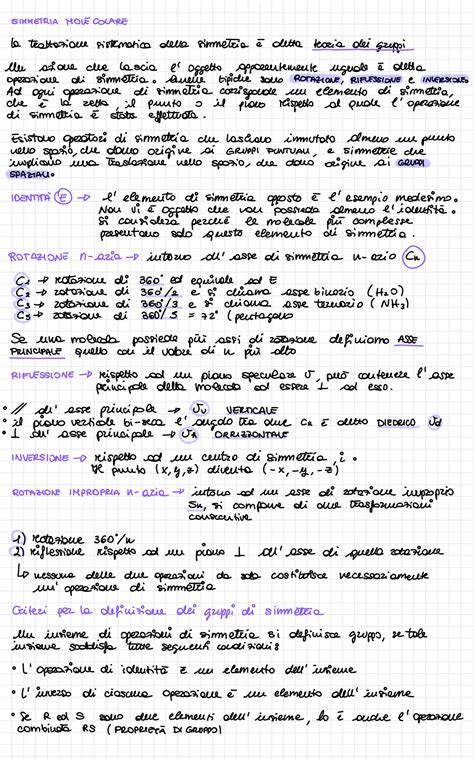 SIMMETRIA MOLECOLARE
la trattazione sistematica della simmetria è detta teoria dei gruppi
Un azione che lascia l'oggetto apparentemente uguale è detta
operazione di simmetria. Quelle tipiche sono ROTAZIONE, RIFLESSIONE e INVERSIONE.
Ad ogni operazione di simmetria corrisponde un elemento di simmetria,
che è la retta, il punto o il piano rispetto al quale l'operazione
di simmetria è stata effettuata.
Esistono operatori di simmetria che lasciano immutato almeno un punto
nello spazio, che danno origine ai GRUPPI PUNTUALI, e simmetrie che
implicano una traslazione nello spazio, che dano origine ai GRUPPI
SPAZIALI.
IDENTITÀ (E) → l'elemento di simmetria opposto è l'esempio medesimo.
Non vi è oggetto che non possieda almeno l'identità.
Si considera perché le molecole più complesse
presentano solo questo elemento di simmetria.
ROTAZIONE n-aria → intorno all'asse di simmetria n-ario Cn
C1 → rotazione di 360° ed equivale ad E
C2 → rotazione di 360°/2 e si chiama asse binario (H2O)
C3 → rotazione di 360°/3 e si chiama asse ternario (NH3)
C5 → rotazione di 360°/5 = 72° (pentagono
Se una molecola possiede più assi di rotazione definiamo ASSE
PRINCIPALE quello con il valore di n più alto
RIFLESSIONE → rispetto ad un piano speculare σ, può contenere l'asse
principale della molecola od essere ⊥ ad esso.
• // all'asse principale → σv VERTICALE
• il piano verticale bi-seca l'angolo tra due C2 è detto DIEDRICO σd
• ⊥ all'asse principale → σh ORIZZONTALE
INVERSIONE → rispetto ad un centro di simmetria, i.
Il punto (x,y,z) diventa (-x,-y,-z)
ROTAZIONE IMPROPRIA n-aria → intorno ad un asse di rotazione improprio
Sn, si compone di due trasformazioni
consecutive
1) rotazione 360°/n
2) riflessione rispetto ad un piano ⊥ all'asse di quella rotazione
↳ nessuna delle due operazioni da sola costituisce necessariamente
un'operazione di simmetria
Criteri per la definizione dei gruppi di simmetria
Un insieme di operazioni di simmetria si definisce gruppo, se tale
insieme soddisfa tutte seguenti condizioni:
• l'operazione di identità è un elemento dell'insieme
• l'inverso di ciascuna operazione è un elemento dell'insieme
• Se R ed S sono due elementi dell'insieme, lo è anche l'operazione
combinata RS (PROPRIETÀ DI GRUPPO)